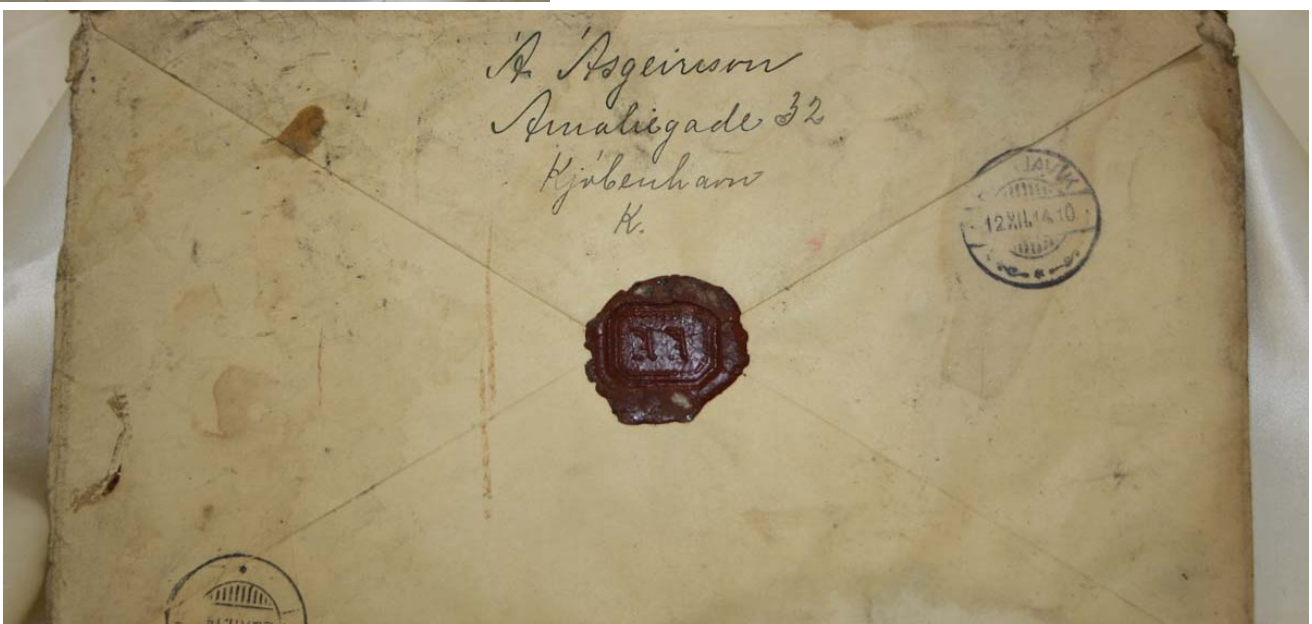 Á Ásgeirsson
Amaliegade 32
Kjøbenhavn
K.
JAVIK
12.XII.14.10